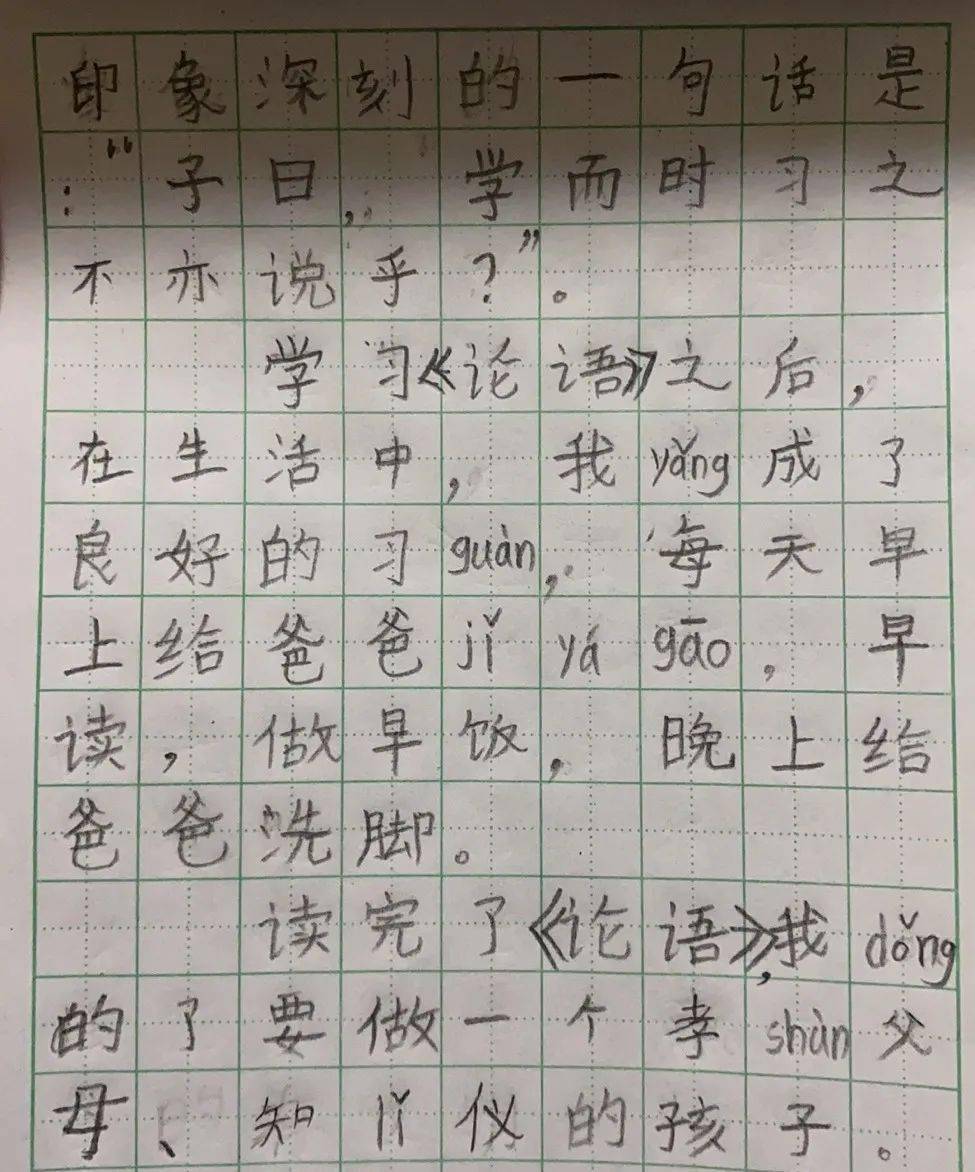 印象深刻的一句话是
：“子曰，学而时习之
不亦说乎？”。
学习《论语》之后，
在生活中，我yǎng成了
良好的习guàn，每天早
上给爸爸jǐ yá gāo，早
读，做早饭，晚上给
爸爸洗脚。
读完了《论语》，我dǒng
的了要做一个孝shùn父
母、知lǐ仪的孩子。